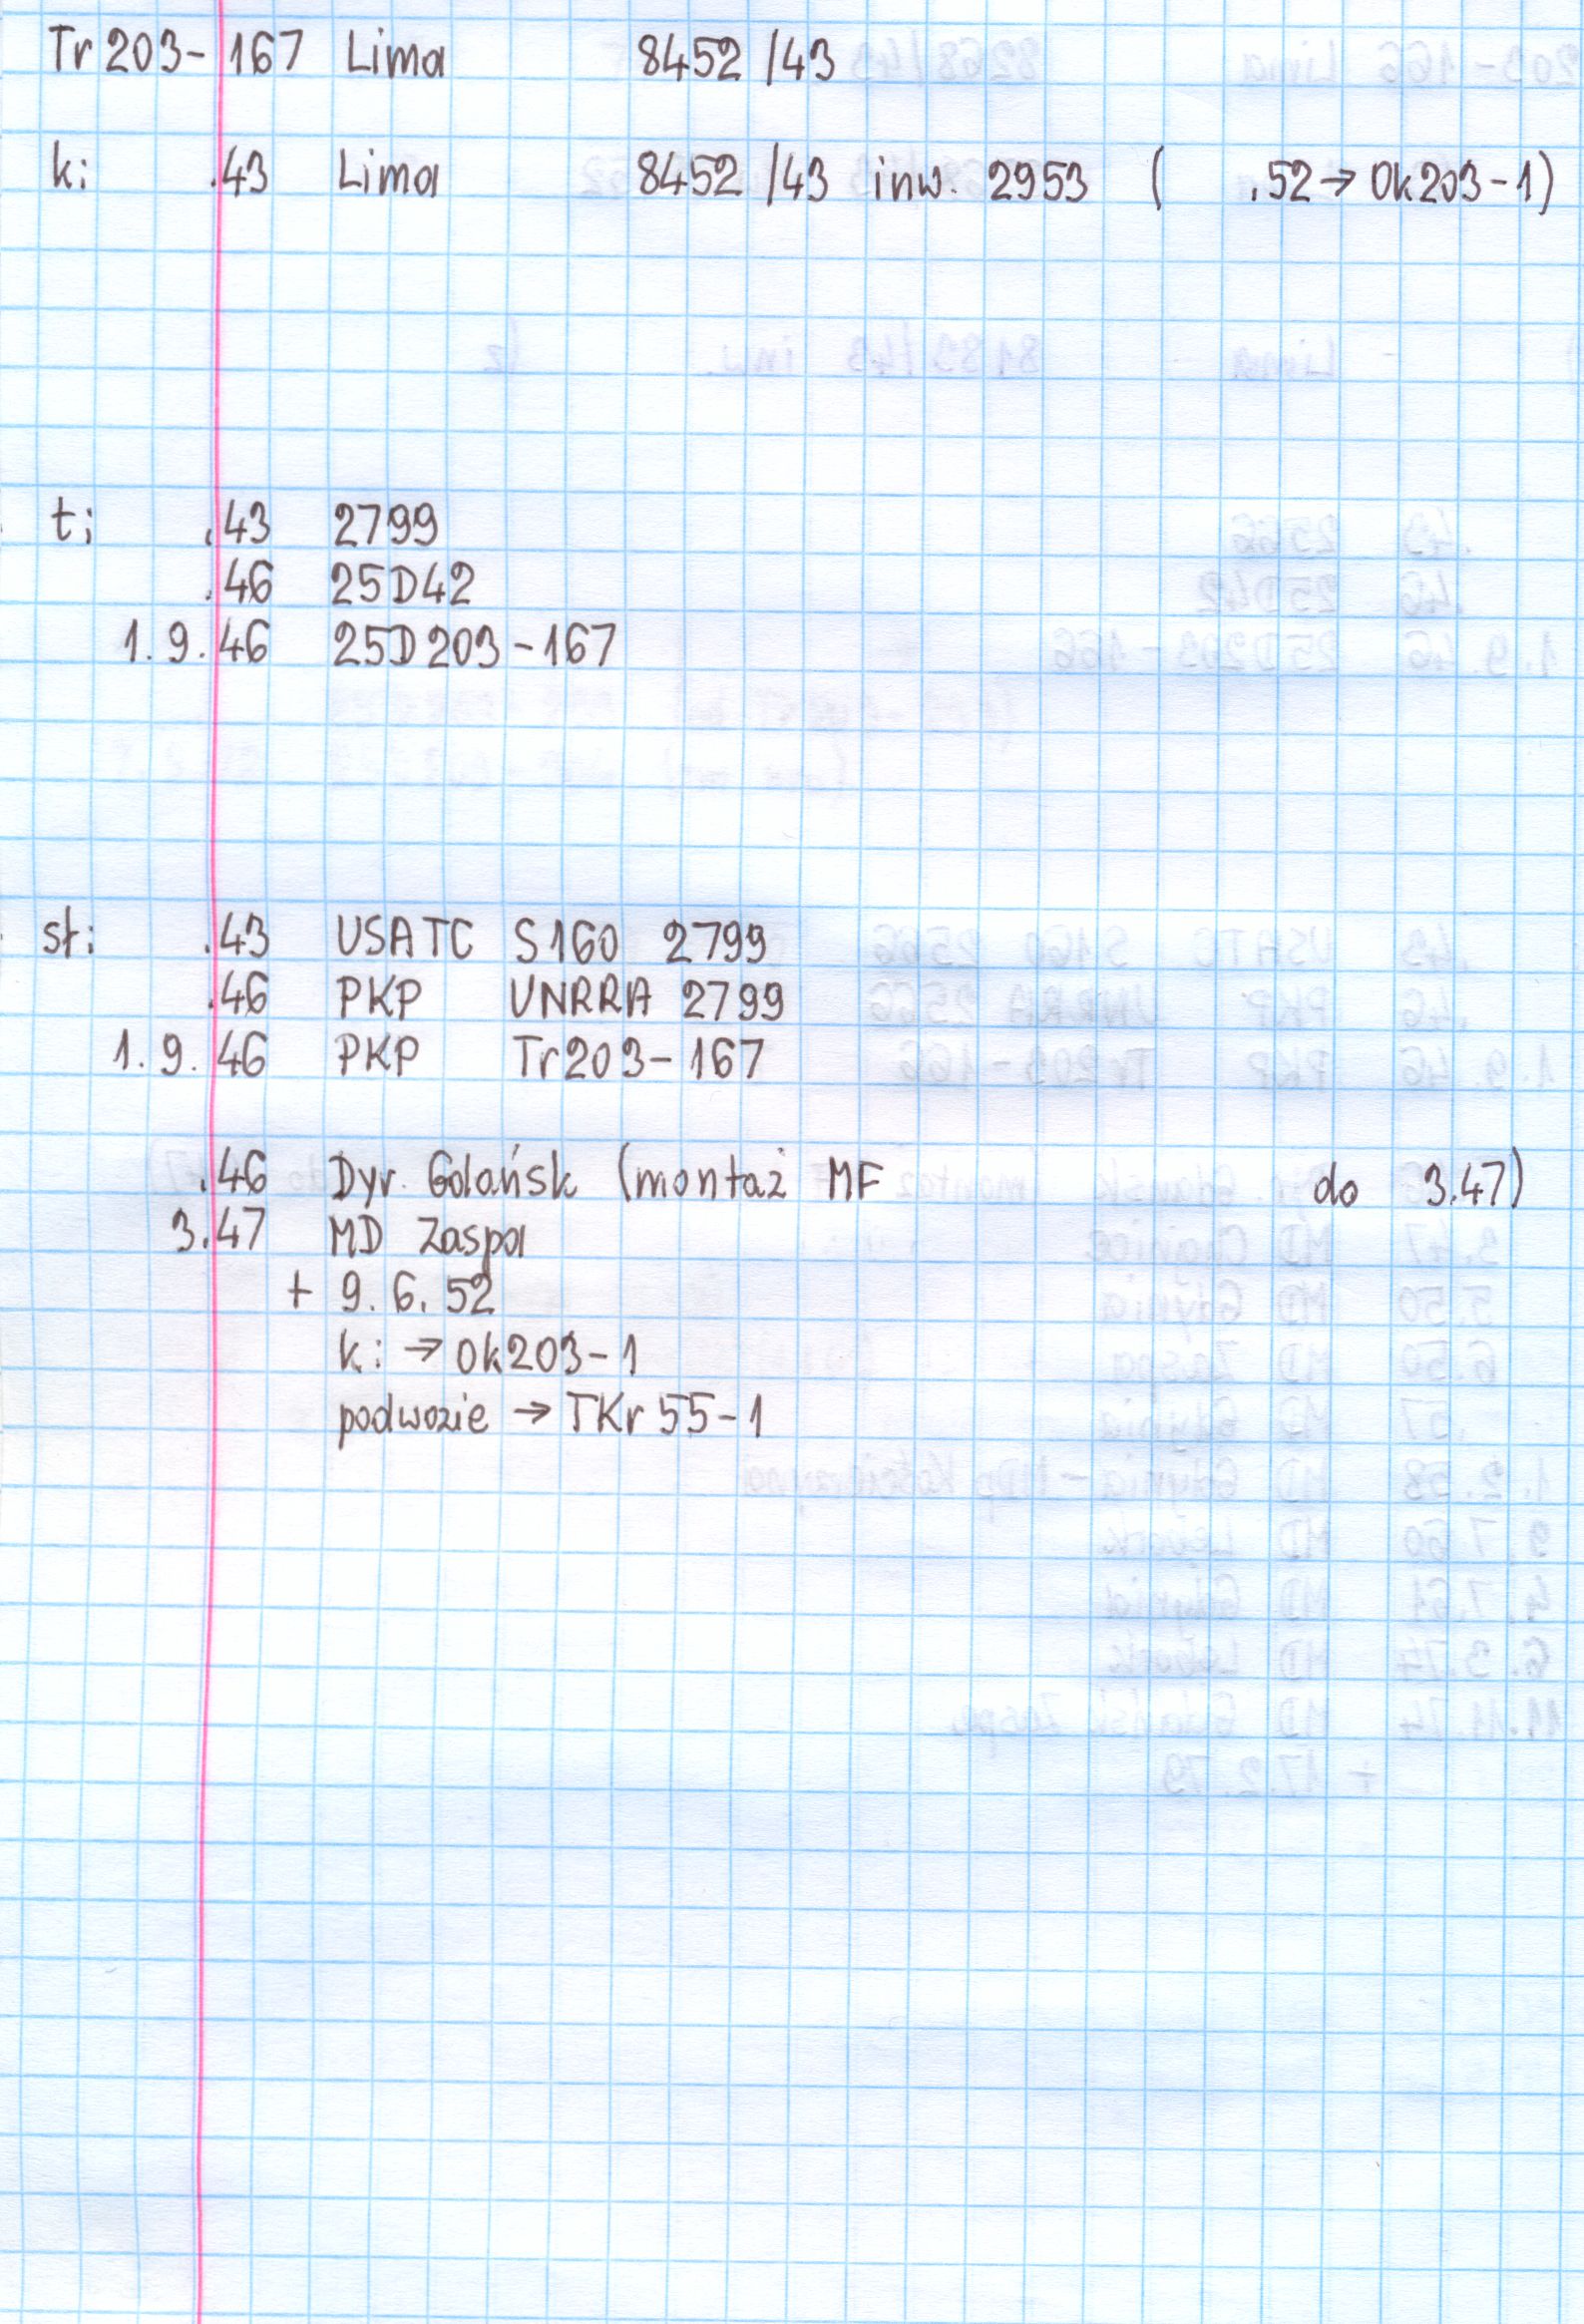 Tr203-167 Lima 8452/43
k: .43 Lima 8452/43 inw. 2953 ( .52→Ok203-1)
t: .43 2799
.46 25D42
1.9.46 25D203-167
st: .43 USATC S160 2799
.46 PKP UNRRA 2799
1.9.46 PKP Tr203-167
.46 Dyr. Gdańsk (montaż MF do 3.47)
3.47 MD Zaspa
+ 9.6.52
k: → Ok203-1
podwozie → TKr55-1